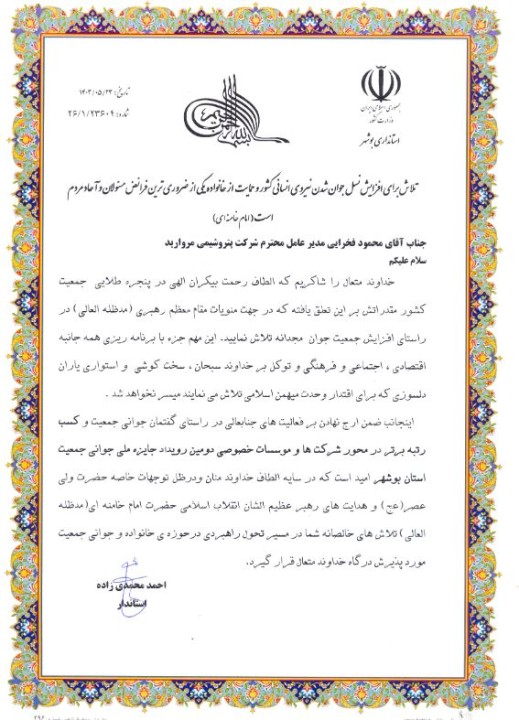 تاریخ: ۱۴۰۲/۰۵/۲۲
شماره: ۲۶/۱/۲۳۶۰۹
جمهوری اسلامی ایران
وزارت کشور
استانداری بوشهر
تلاش برای افزایش نسل جوان شدن نیروی انسانی کشور و حمایت از خانواده یکی از ضروری ترین فرائض مسئولان و آحاد مردم
است (امام خامنه ای)
جناب آقای محمود فخرایی مدیر عامل محترم شرکت پتروشیمی مروارید
سلام علیکم
خداوند متعال را شاکریم که الطاف رحمت بیکران الهی در پنجره طلایی جمعیت
کشور مقدراتش بر این تعلق یافته که در جهت منویات مقام معظم رهبری (مدظله العالی) در
راستای افزایش جمعیت جوان مجدانه تلاش نمایید. این مهم جزء با برنامه ریزی همه جانبه
اقتصادی ، اجتماعی و فرهنگی و توکل بر خداوند سبحان ، سخت کوشی و استواری یاران
دلسوزی که برای اقتدار وحدت میهن اسلامی تلاش می نمایند میسر نخواهد شد .
اینجانب ضمن ارج نهادن بر فعالیت های جنابعالی در راستای گفتمان جوانی جمعیت و کسب
رتبه برتر در محور شرکت ها و موسسات خصوصی دومین رویداد جایزه ملی جوانی جمعیت
استان بوشهر امید است که در سایه الطاف خداوند منان ودرظل توجهات خاصه حضرت ولی
عصر(عج) و هدایت های رهبر عظیم الشان انقلاب اسلامی حضرت امام خامنه ای(مدظله
العالی) تلاش های خالصانه شما در مسیر تحول راهبردی درحوزه ی خانواده و جوانی جمعیت
مورد پذیرش درگاه خداوند متعال قرار گیرد.
احمد محمدی زاده
استاندار